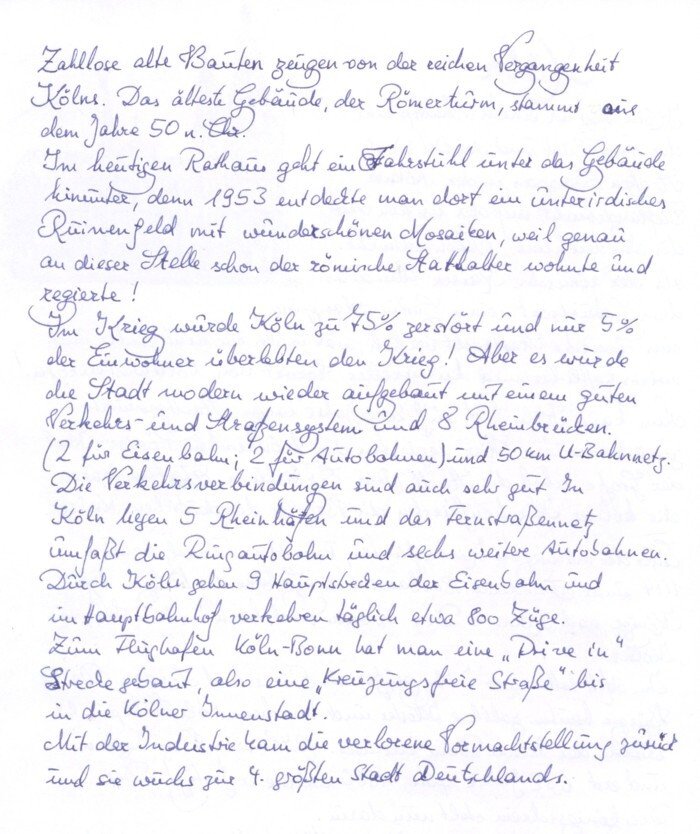 Zahllose alte Bauten zeugen von der reichen Vergangenheit
Kölns. Das älteste Gebäude, der Römerturm, stammt aus
dem Jahre 50 n. Chr.
Im heutigen Rathaus geht ein Fahrstuhl unter das Gebäude
hinunter, denn 1953 entdeckte man dort ein unterirdisches
Ruinenfeld mit wunderschönen Mosaiken, weil genau
an dieser Stelle schon der römische Statthalter wohnte und
regierte!
Im Krieg wurde Köln zu 75% zerstört und nur 5%
der Einwohner überlebten den Krieg! Aber es wurde
die Stadt modern wieder aufgebaut mit einem guten
Verkehrs- und Straßensystem und 8 Rheinbrücken.
(2 für Eisenbahn; 2 für Autobahnen) und 50 km U-Bahnnetz.
Die Verkehrsverbindungen sind auch sehr gut In
Köln liegen 5 Rheinhäfen und das Fernstraßennetz
umfaßt die Ringautobahn und sechs weitere Autobahnen.
Durch Köln gehen 9 Hauptstrecken der Eisenbahn und
im Hauptbahnhof verkehren täglich etwa 800 Züge.
Zum Flughafen Köln-Bonn hat man eine „Drive in"
Strecke gebaut, also eine „Kreuzungsfreie Straße" bis
in die Kölner Innenstadt.
Mit der Industrie kam die verlorene Vormachtstellung zurück
und sie wuchs zur 4. größten Stadt Deutschlands.